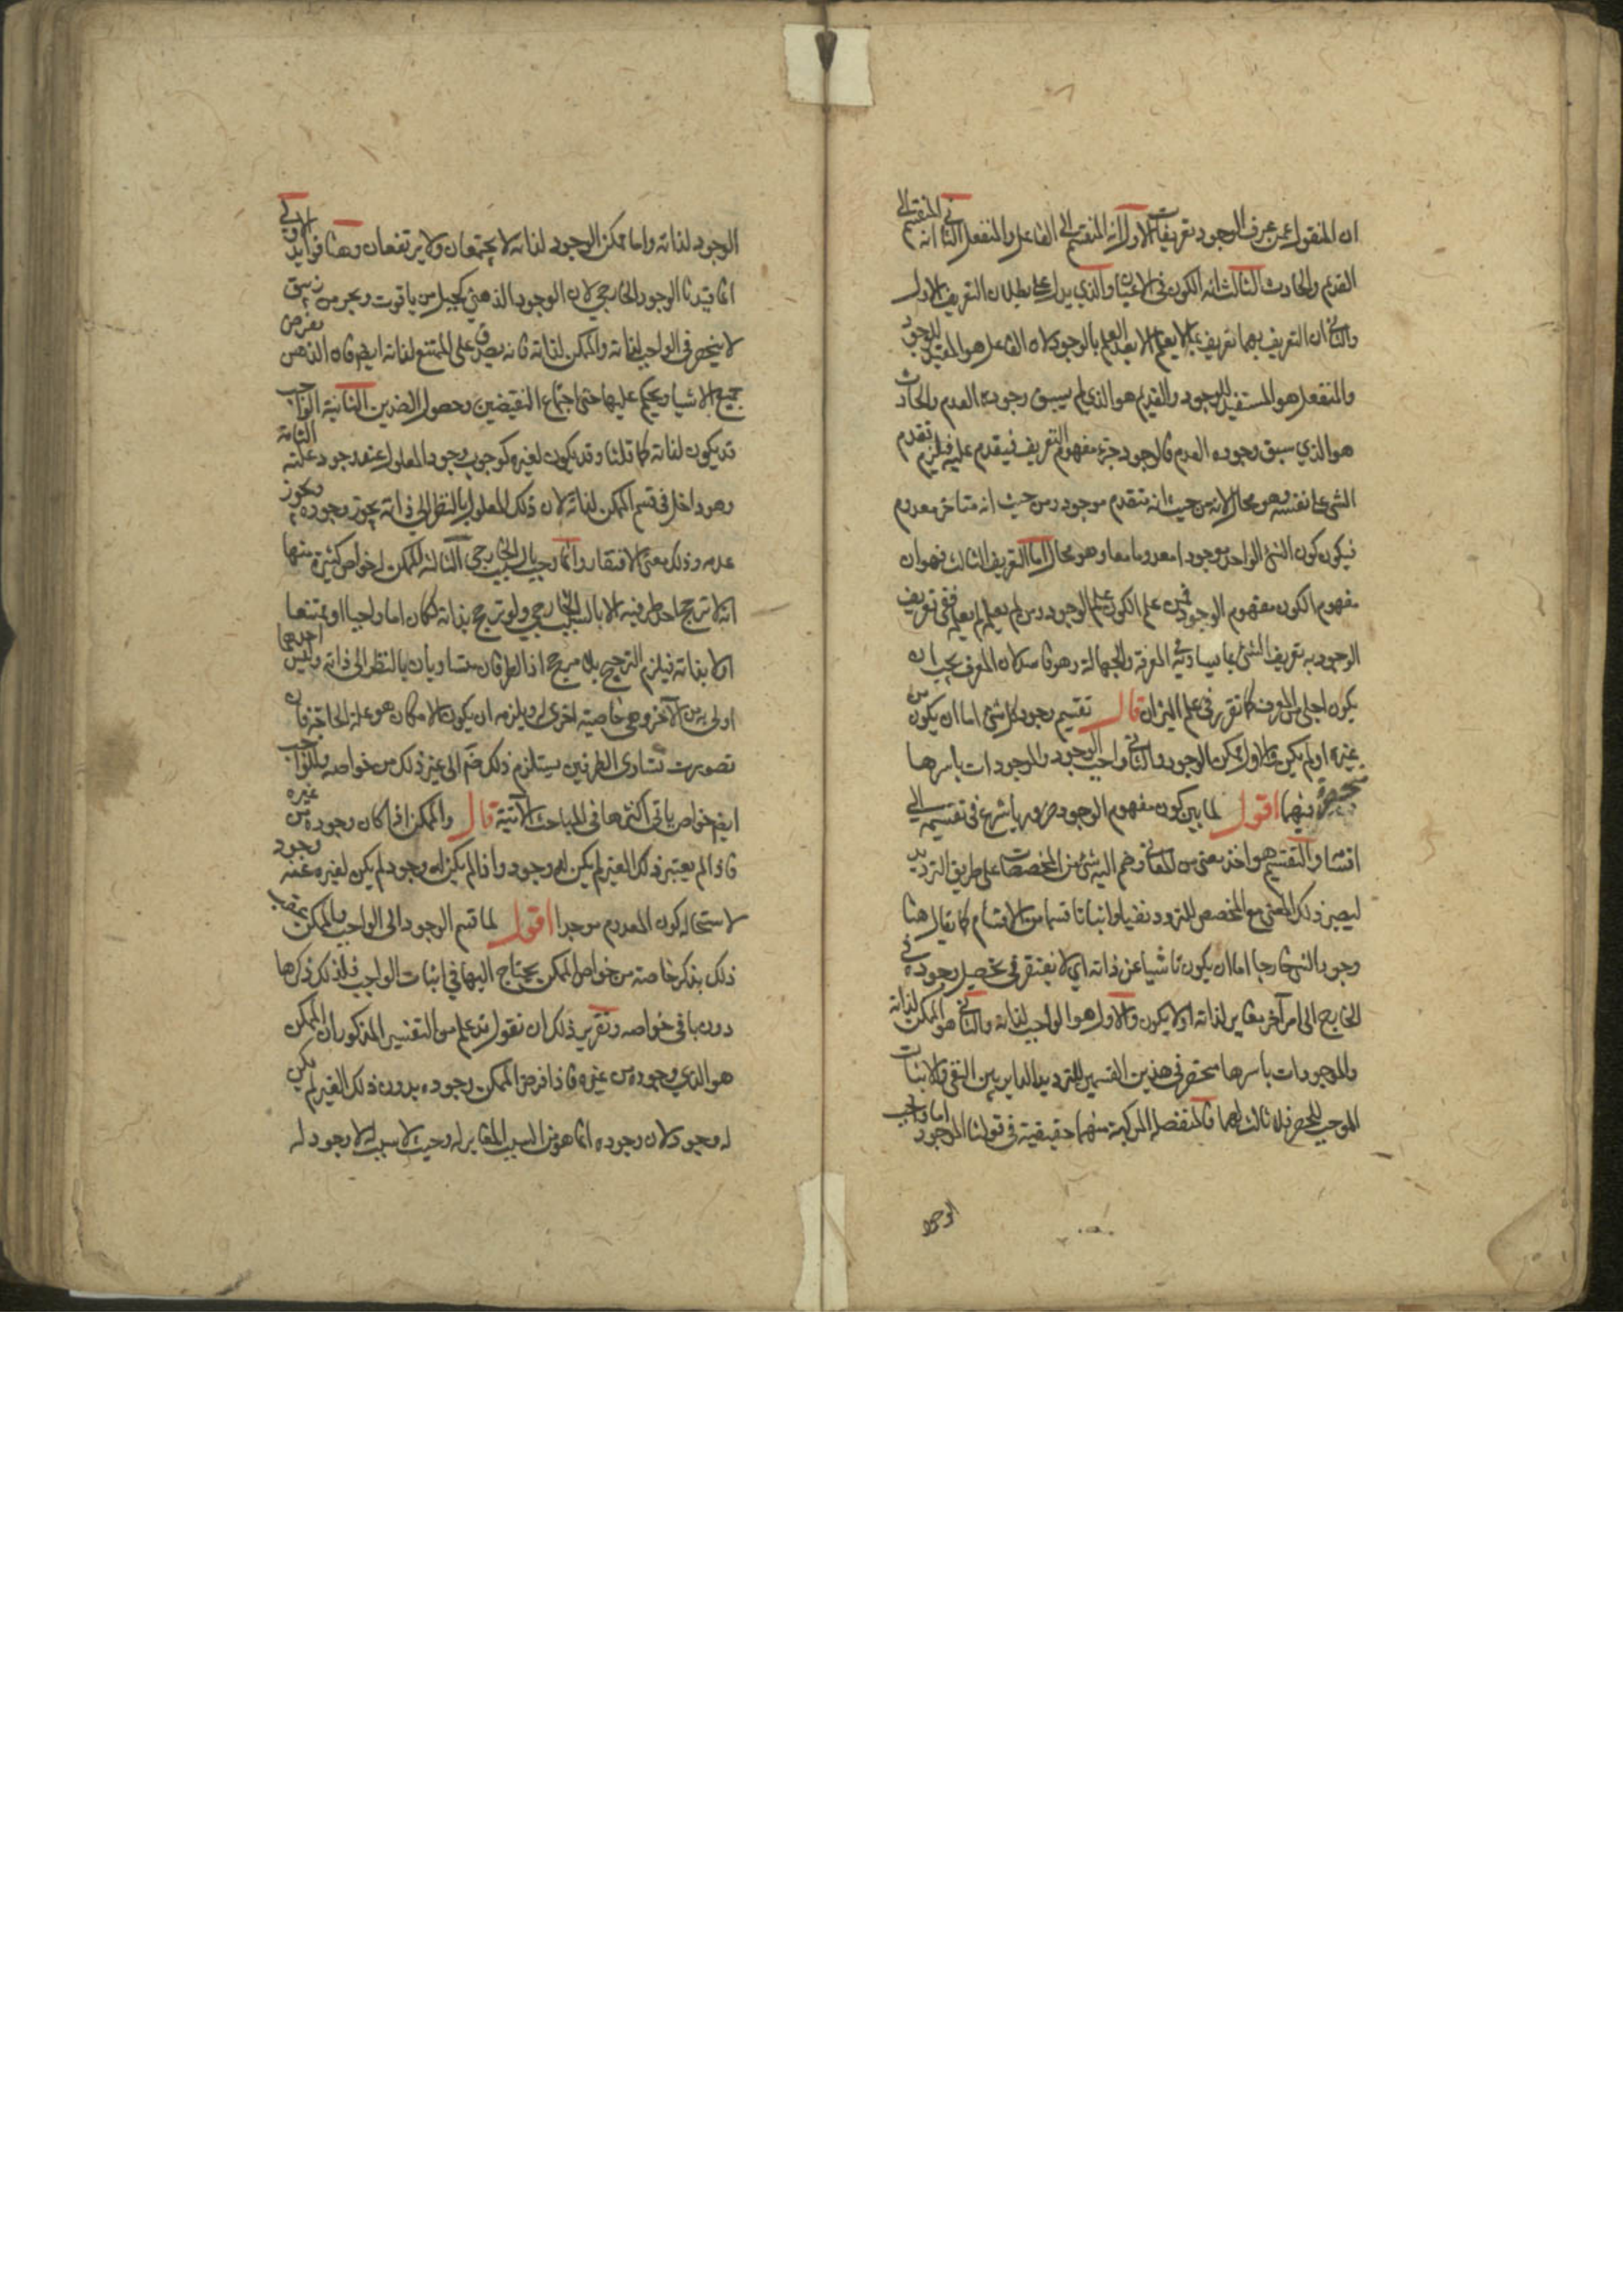 ان المنقول عمن عرف الوجود تعريفات الاول انه المنقسم الى الفاعل والمنفعل الثاني انه المنقسم الى
القديم والحادث الثالث انه الكون في الاعيان والذي يدل على بطلان التعريف الاول
والثاني ان التعريف بهما تعريف بما لا يعلم الا بعد العلم بالوجود لان الفاعل هو المفيد للوجود
والمنفعل هو المستفيد للوجود والقديم هو الذي لم يسبق وجوده العدم والحادث
هو الذي سبق وجوده العدم فالوجود جزء مفهوم التعريف فيتقدم عليه فيلزم تقدم
الشي على نفسه وهو محال لانه من حيث انه متقدم موجود ومن حيث انه متاخر معدوم
فيكون كون الشئ الواحد موجودا معدوما معا وهو محال اما التعريف الثالث فهو ان
مفهوم الكون مفهوم الوجود فمن علم الكون علم الوجود ومن لم يعلمه لم يعلمه ففي تعريف
الوجود به تعريف الشئ بما يساويه في المعرفة والجهالة وهو فاسد لان المعرف يجب ان
يكون اجلى من المعرف كما تقرر في علم الميزان قال تقسيم وجود كل شئ اما ان يكون من
غيره او لم يكن والاول ممكن الوجود والثاني واجب الوجود والموجودات باسرها
منحصرة فيهما اقول لما بين كون مفهوم الوجود ضروريا شرع في تقسيمه الى
اقسام والتقسيم هو اخذ معنى من المعاني وضم اليه شئ من المخصصات على طريق الترديد
ليصير ذلك المعنى مع المخصص المتردد نفيا واثباتا قسما من الاقسام كما يقال هنا
وجود الشي خارجا اما ان يكون ناشيا عن ذاته اي لا يفتقر في تحصيل وجوده في
الخارج الى امر آخر مغاير لذاته او لا يكون والاول هو الواجب لذاته والثاني هو الممكن لذاته
والموجودات باسرها منحصر في هذين القسمين للترديد الداير بين النفي والاثبات
الموجب للحصر فلا ثالث لهما فالمنفصلة المركبة منهما حقيقية في قولنا الموجود اما واجب
الوجود
الوجود لذاته واما ممكن الوجود لذاته لا يجتمعان ولا يرتفعان وهنا فوايد الاولى
انما قيدنا الوجود الخارجي لان الوجود الذهني كجبل من ياقوت وبحر من زيبق
لا ينحصر في الواجب لذاته والممكن لذاته فانه يصدق على الممتنع لذاته ايضا فان الذهن يفرض
جميع الاشيا ويحكم عليها حتى اجتماع النقيضين وحصول الضدين الثانية الواجب
قد يكون لذاته كما قلنا وقد يكون لغيره كوجوب وجود المعلول عند وجود علته التامة
وهو داخل في قسم الممكن لذاته لان ذلك المعلول بالنظر الى ذاته يجوز وجوده ويجوز
عدمه وذلك معنى الافتقار وانما وجب بالسبب الخارجي الثالثة للممكن لخواص كثيرة منها
انه لا يترجح احد طرفيه الا بالسبب الخارجي ولو ترجح بذاته لكان اما واجبا او ممتنعا
او لا بذاته فيلزم الترجيح بلا مرجح اذ الطرفان متساويان بالنظر الى ذاته وليس احدهما
اولى به من الآخر وهي خاصية اخرى له ويلزمه ان يكون الامكان هو علة الحاجة فان
تصورت تساوى الطرفين يستلزم ذلك ضم الى غير ذلك من خواصه وللواجب
ايضا خواص ياتي اكثرها في المباحث الآتية قال والممكن اذا كان وجوده من غيره
فاذا لم يعتبر ذلك الغير لم يكن له وجود واذا لم يكن له وجود لم يكن لغيره عنه وجود
لاستحالة كون المعدوم موجدا اقول لما قسم الوجود الى الواجب والممكن عقب
ذلك بذكر خاصة من خواص الممكن يحتاج اليها في اثبات الواجب فلذلك ذكرها
دون باقي خواصه وتقرير ذلك ان نقول قد علم من التقسيم المذكور ان الممكن
هو الذي وجوده من غيره فاذا فرض الممكن وجوده بدون ذلك الغير لم يكن
له وجود لان وجوده انما هو من السبب المغاير له وحيث لا سبب له لا وجود له